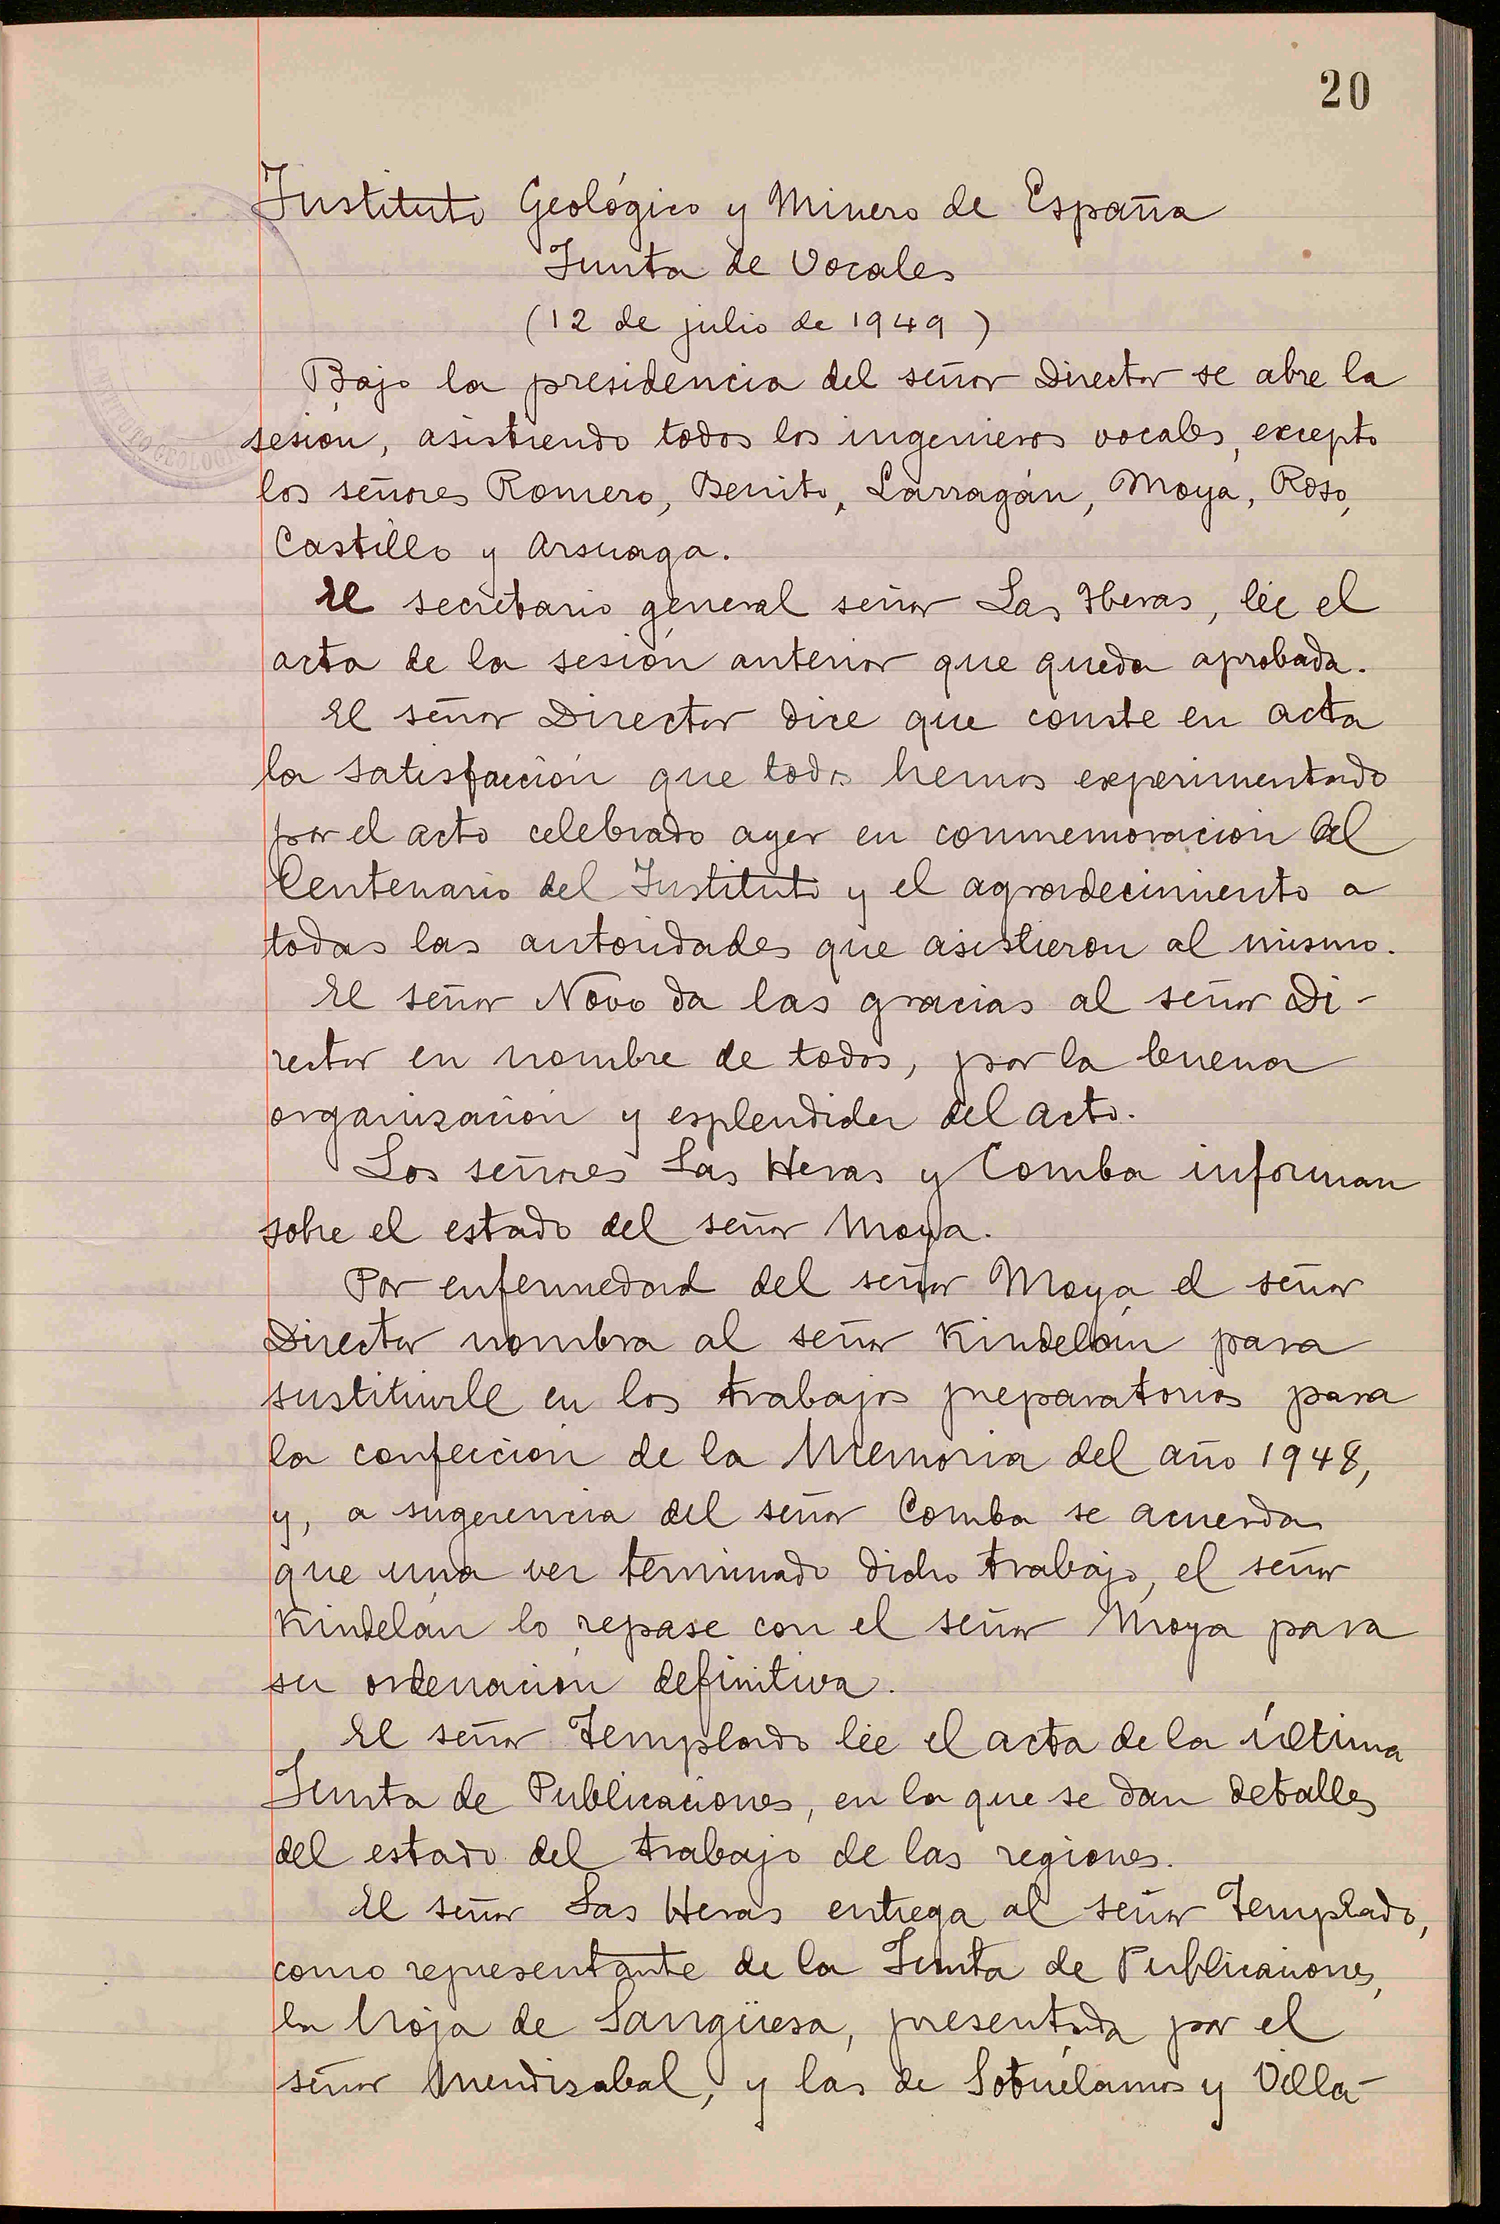 20
Instituto Geológico y Minero de España
Junta de Vocales
(12 de julio de 1949)
Bajo la presidencia del señor Director se abre la
sesión, asistiendo todos los ingenieros vocales, excepto
los señores Romero, Benito, Larragán, Moya, Roso,
Castillo y Arsuaga.
El secretario general señor Las Heras, lée el
acta de la sesión anterior que queda aprobada.
El señor Director dice que conste en acta
la satisfacción que todos hemos experimentado
por el acto celebrado ayer en conmemoración del
Centenario del Instituto y el agradecimiento a
todas las autoridades que asistieron al mismo.
El señor Novo da las gracias al señor Di-
rector en nombre de todos, por la buena
organización y esplendidez del acto.
Los señores Las Heras y Comba informan
sobre el estado del señor Moya.
Por enfermedad del señor Moya el señor
Director nombra al señor Kindelán para
sustituirle en los trabajos preparatorios para
la confección de la Memoria del año 1948,
y, a sugerencia del señor Comba se acuerda
que una vez terminado dicho trabajo, el señor
Kindelán lo repase con el señor Moya para
su ordenación definitiva.
El señor Templado lée el acta de la última
Junta de Publicaciones, en la que se dan detalles
del estado del trabajo de las regiones.
El señor Las Heras entrega al señor Templado,
como representante de la Junta de Publicaciones,
la hoja de Sangüesa, presentada por el
señor Mendizabal, y las de Sotuélamos y Villa-